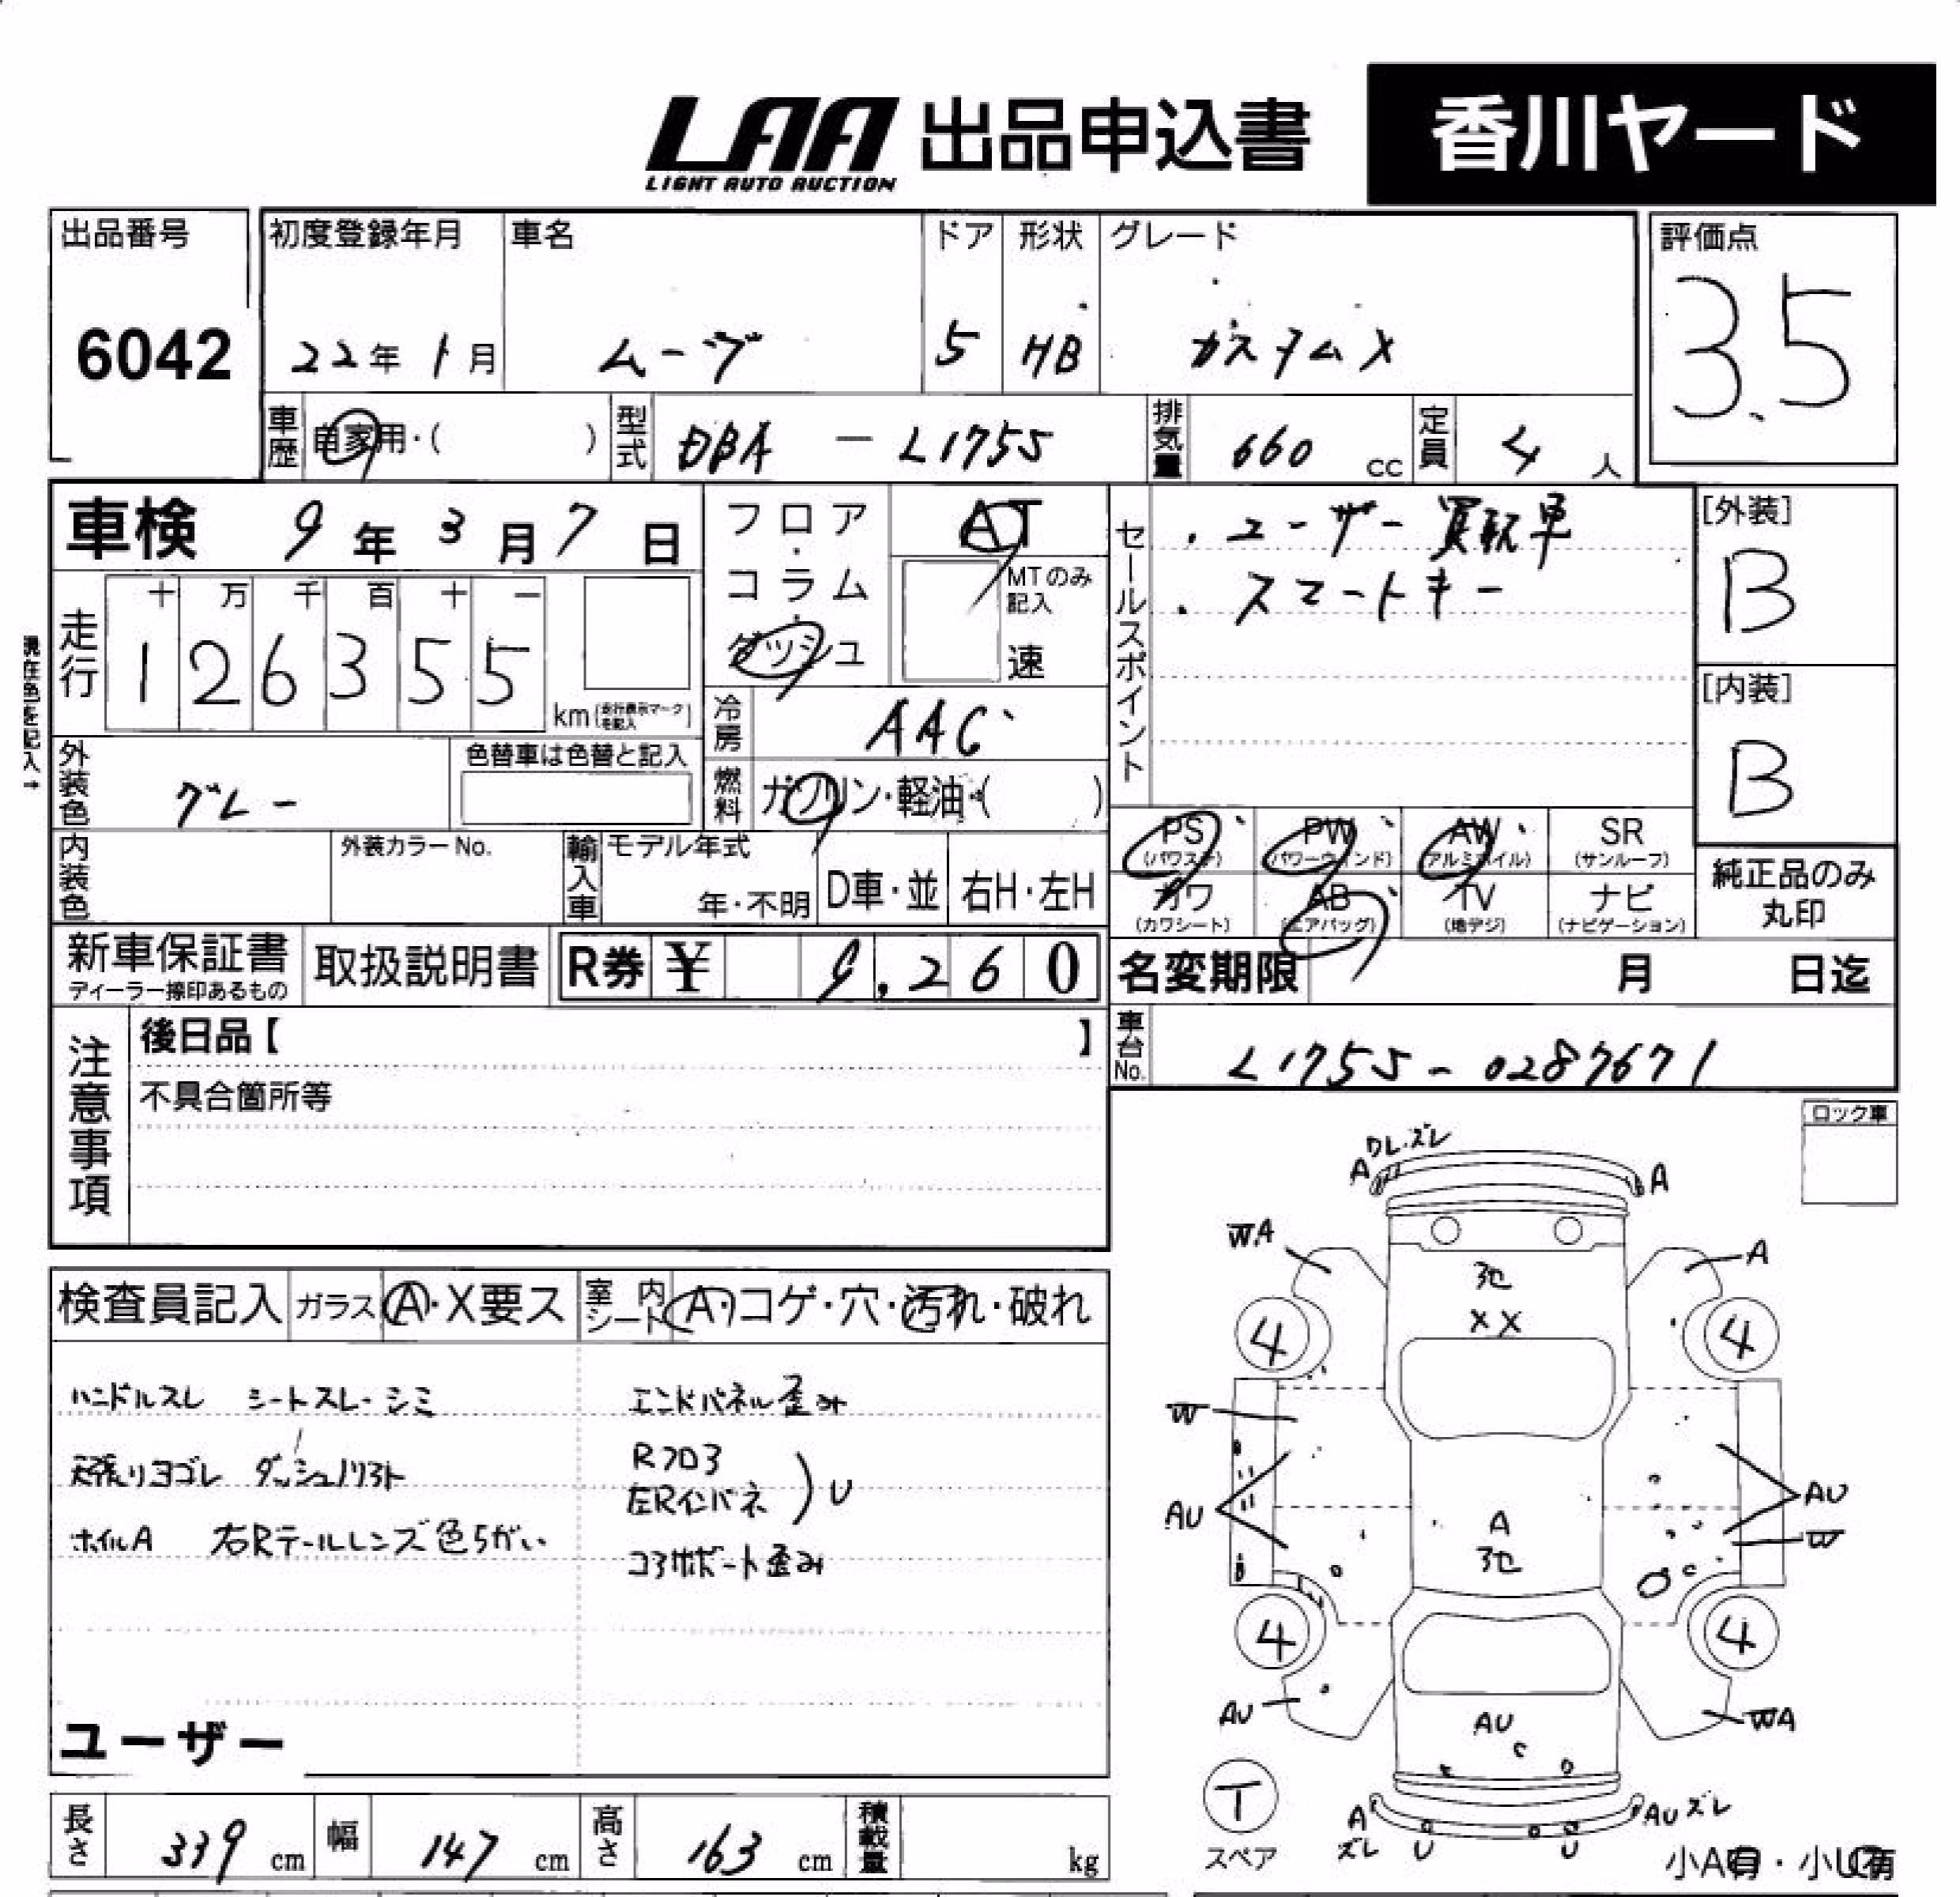 LAA 出品申込書 香川ヤード
LIGHT AUTO AUCTION
出品番号 初度登録年月 車名 ドア 形状 グレード 評価点
6042 22年 1月 ムーヴ 5 HB カスタムX 3.5
車歴 自家用・( ) 型式 DBA - L175S 排気量 660 cc 定員 4 人
車検 9年 3月 7日
フロア・コラム・ダッシュ AT
MTのみ記入
速
セールスポイント
・ユーザー買取車
・スマートキー
[外装]
B
[内装]
B
現在色を記入→
走行 十 万 千 百 十 一
1 2 6 3 5 5 km (走行表示マークを記入)
冷房 AAC
外装色 グレー 色替車は色替と記入
燃料 ガソリン・軽油・( )
PS (パワステ) PW (パワーウィンド) AW (アルミホイル) SR (サンルーフ)
カワ (カワシート) AB (エアバッグ) TV (地デジ) ナビ (ナビゲーション)
純正品のみ
丸印
内装色 外装カラーNo. 輸入車 モデル年式 年・不明 D車・並 右H・左H
新車保証書 取扱説明書 R券 ¥ 9,260
ディーラー捺印あるもの
名変期限 月 日迄
車台No. L175S-0287671
注意事項
後日品【 】
不具合箇所等
ロック車
検査員記入 ガラス A・X要ス 室内シート A・コゲ・穴・汚れ・破れ
ハンドルスレ シートスレ・シミ エンドパネル歪み
天張りヨゴレ ダッシュノリアト Rフロア
左Rインパネ ) U
ホイルA 右Rテールレンズ色ちがい
コアサポート歪み
ユーザー
ワレ・ズレ
A A
WA A
XX
4 4
W
AU AU
A
W
4 4
AU AU WA
T
スペア
A AUズレ
ズレ U U
小A有・小U有
長さ 339 cm 幅 147 cm 高さ 163 cm 積載量 kg